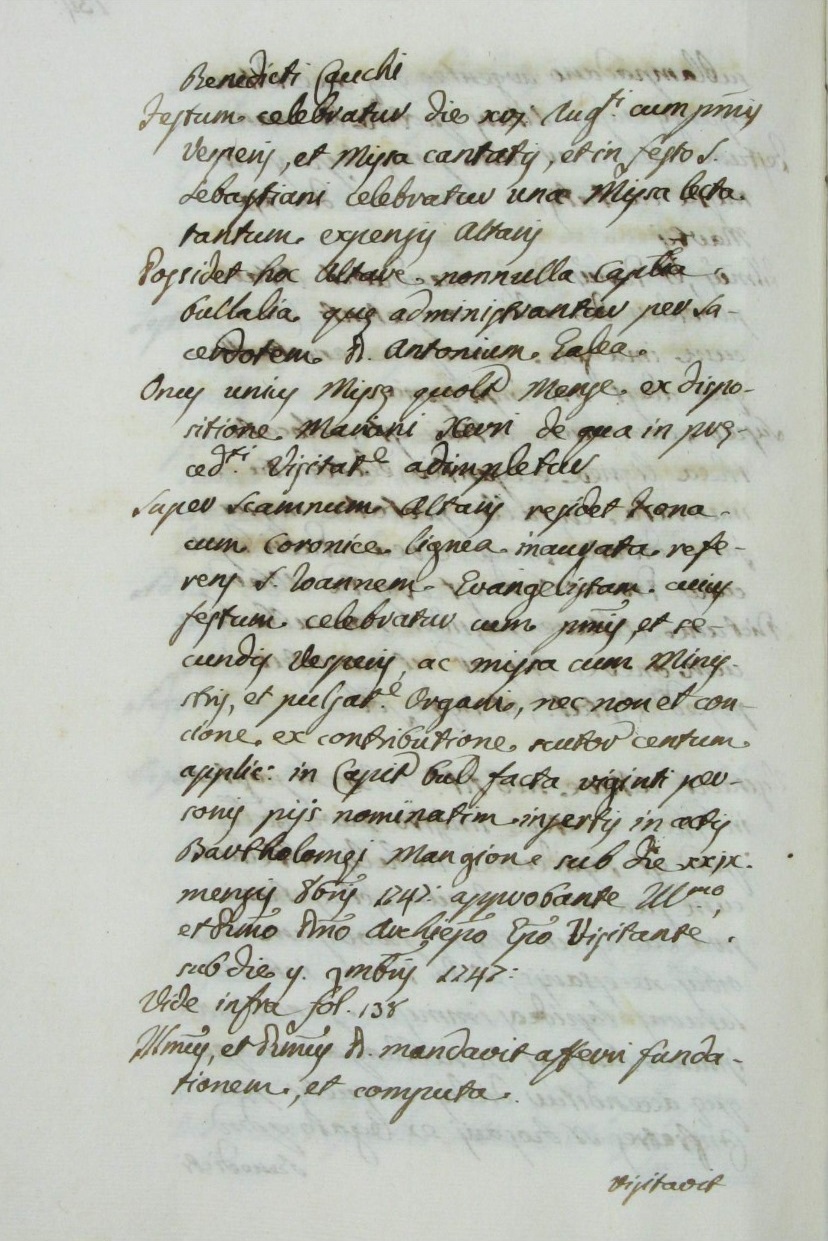 Benedicti Cauchi
Festum celebratur die xvj Augti cum pmis
Vesperis, et Missa cantatis, et in festo S.
Sebastiani celebratur una Missa lecta
tantum expensis Altaris
Possidet hoc Altare nonnulla Caplia
bullalia quę administrantur per Sa-
cerdotem D. Antonium Galea.
Onus unius Missę quolt Mense ex dispo-
sitione Mariani Xerri de qua in prę-
cedti Visitate adimpletur
Super Scamnum Altaris residet Icona
cum Coronice lignea inaurata refe-
rens S. Ioannem Evangelistam cuius
festum celebratur cum pmis, et se-
cundis Vesperis, ac missa cum Minis-
stris, et pulsate Organi, nec non et con-
cione ex contributione scutor centum
applic: in Capit bul facta viginti per-
sonis pijs nominatim insertis in actis
Bartholomęi Mangione sub die xxjx.
mensis 8bris 1747: approbante Illmo,
et Rmo Dno Archiepo Epo Visitante
sub die 9. Xmbris 1747:
Vide infra fol. 138
Illmus, et Rmus D. mandavit afferri funda-
tionem, et computa.
Visitavit